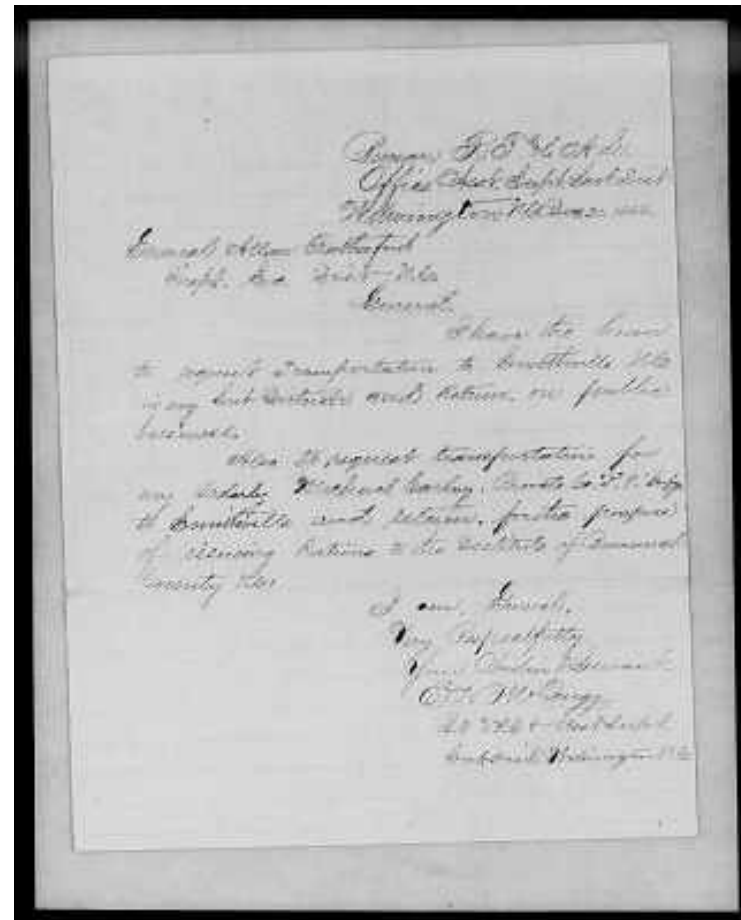 Bureau R. F. & A. L.
Office Asst. Supt. Sub Dist
Wilmington N.C.
General Allan Rutherford
Supt. Dist N.C.
General,
I have the honor
to request transportation to Smithville N.C.
in my Sub District and return, on public
business.
Also to request transportation for
my orderly Michael
to Smithville and return, for the purpose
of issuing Rations to the destitute of Brunswick
County N.C.
I am, General,
Very Respectfully
Your Servant
Asst Supt
Wilmington N.C.